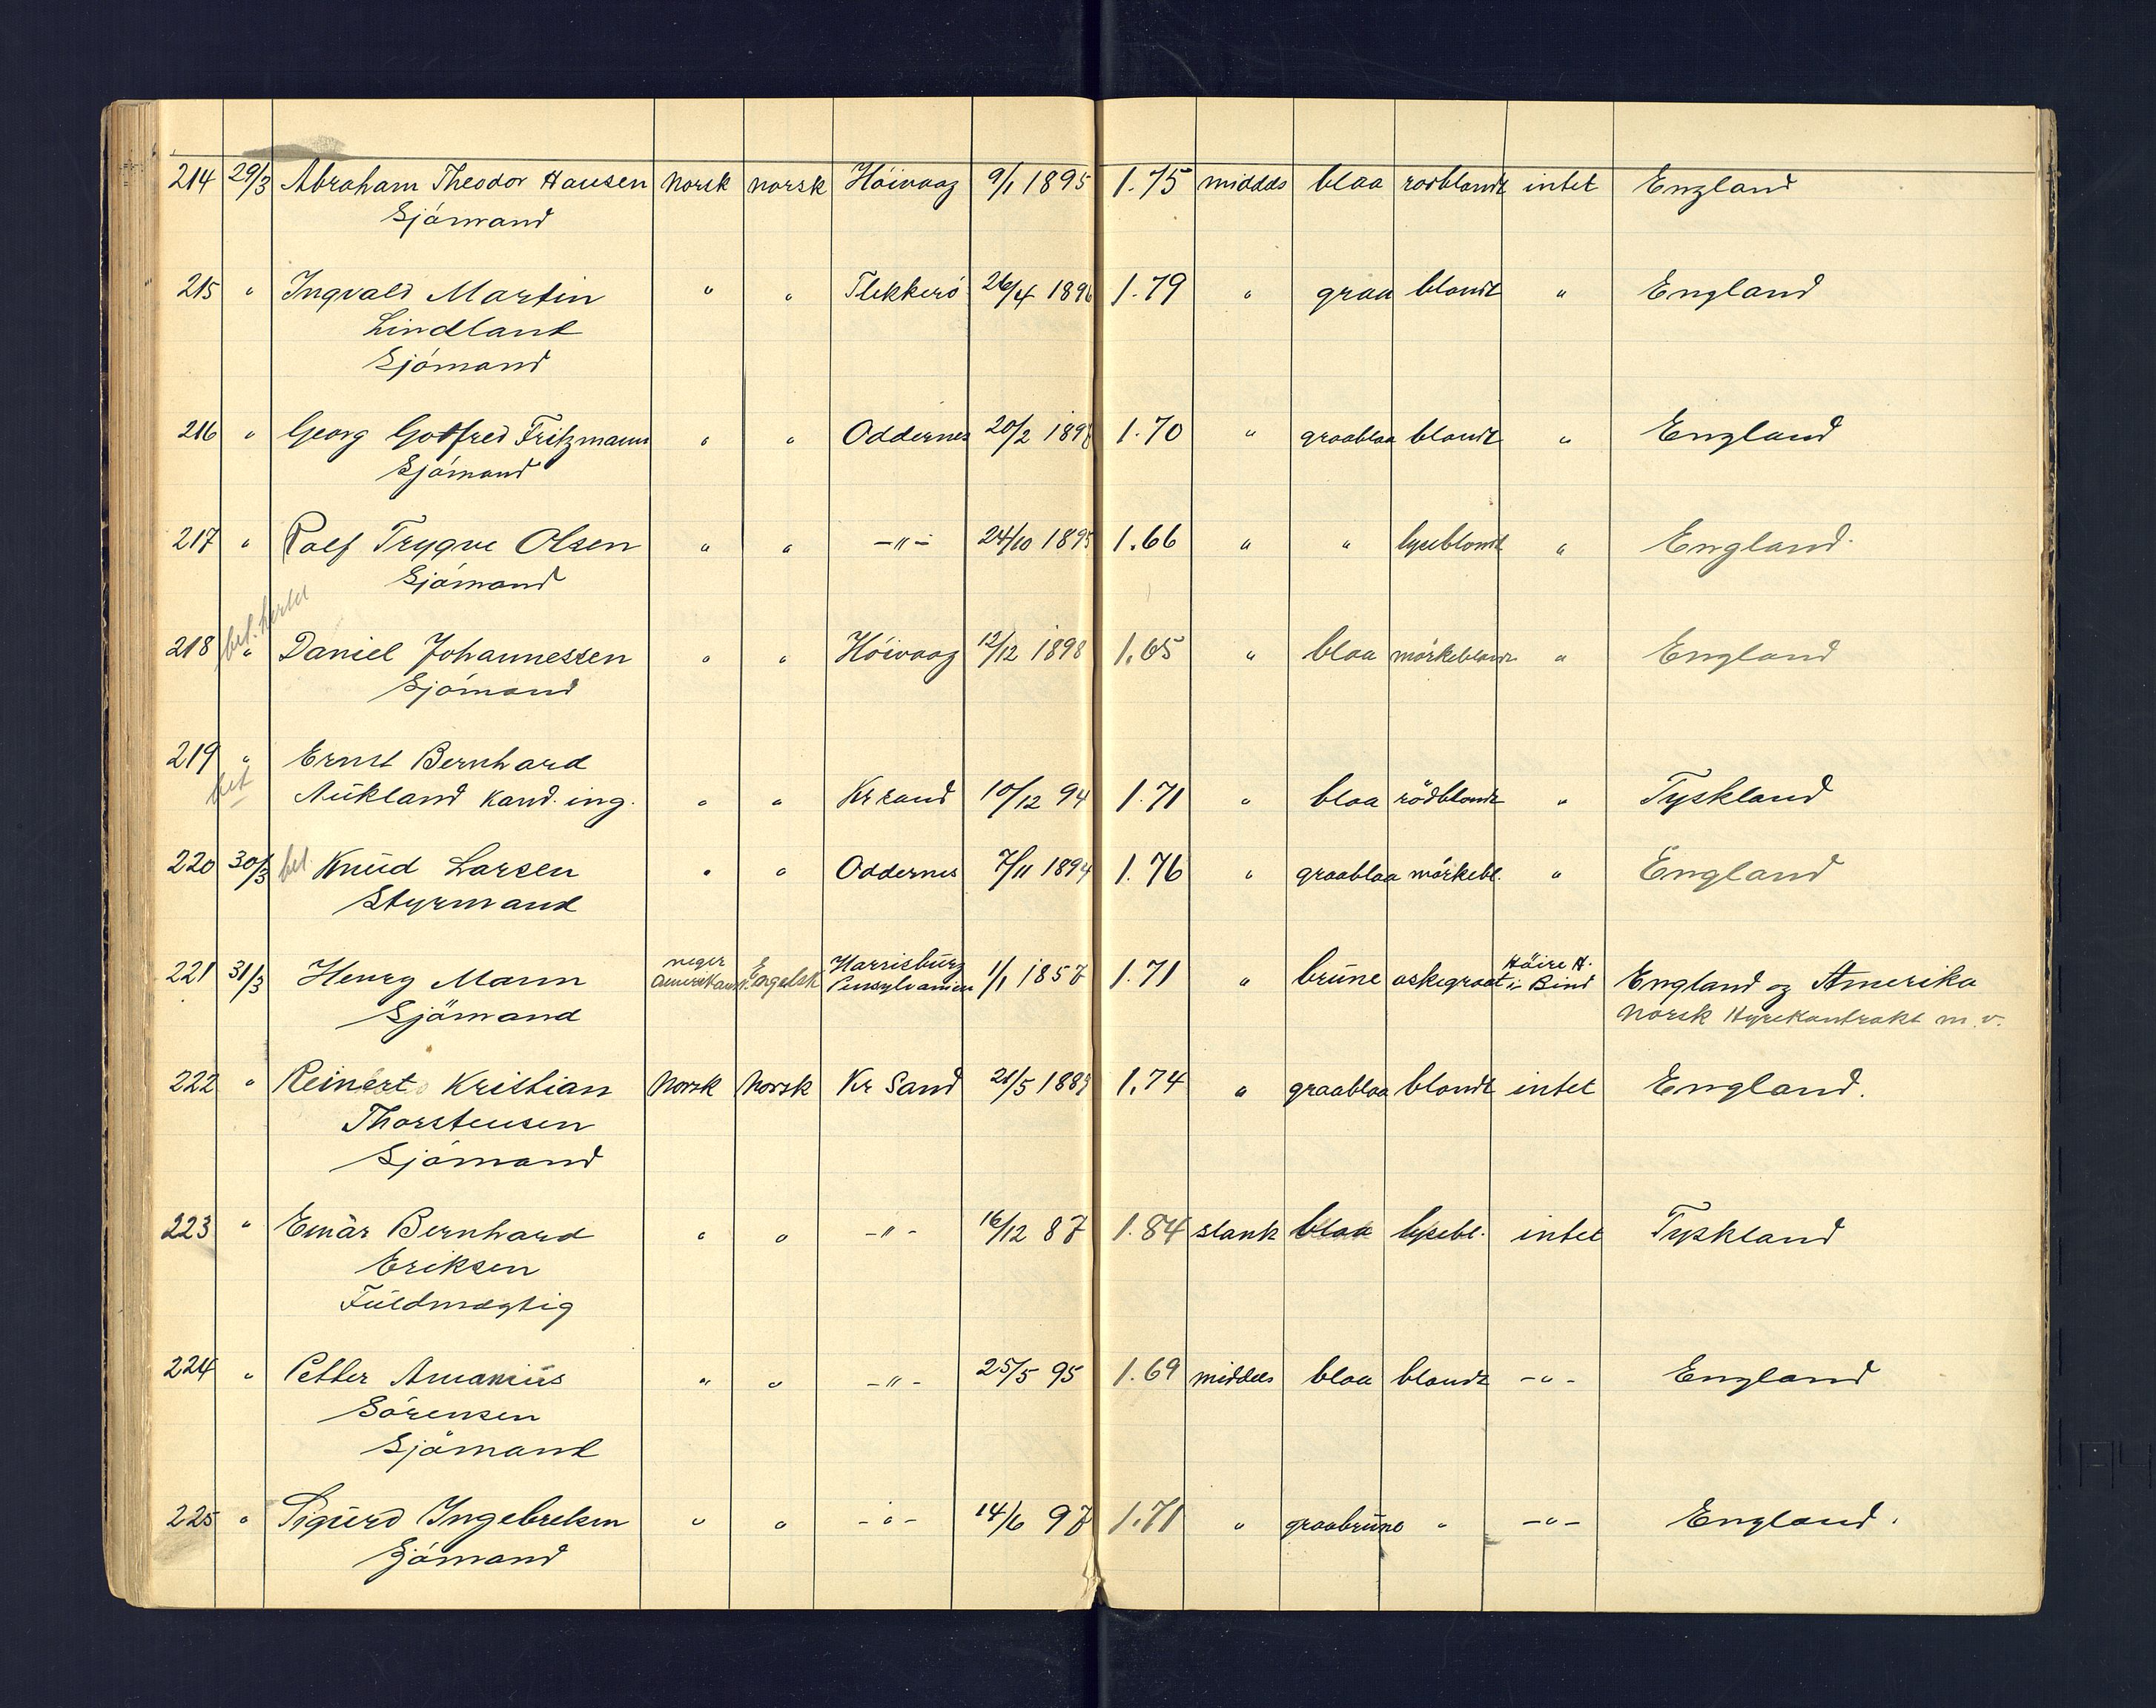 214 29/3 Abraham Theodor Hansen norsk norsk Höivaag 9/1 1895 1.75 middels blaa rödblondt intet England
Sjömand
215 " Ingvald Martin " " Flekkerö 26/4 1896 1.79 " graa blondt " England
Lindland
Sjömand
216 " Georg Gotfred Fritzmann " " Oddernes 20/2 1898 1.70 " graablaa blondt " England
Sjömand
217 " Rolf Trygve Olsen " " -"- 24/10 1895 1.66 " " lyseblondt " England.
Sjömand
218 bet. " Daniel Johannessen " " Höivaag 12/12 1898 1.65 " blaa mörkeblondt " England
Sjömand
219 " Ernst Bernhard
bet Aukland Kand. ing. " " Kr.sand 10/12 94 1.71 " blaa rödblondt " Tyskland
220 30/3 bet Knud Larsen " " Oddernes 7/11 1894 1.76 " graablaa mörkebl. " England
Styrmand
221 31/3 Henry Mann neger Amerikansk Engelsk Harrisburg Pensylvanien 1/1 1857 1.71 " brune askegraat Höire H. i Bind England og Amerika
Sjömand Norsk Hyrekontrakt m. v.
222 " Reinert Kristian Norsk Norsk Kr Sand 21/5 1889 1.74 " graablaa blondt intet England.
Thorstensen
Sjömand
223 " Einar Bernhard " " -"- 16/12 87 1.84 slank blaa lysebl. intet Tyskland
Eriksen
Fuldmægtig
224 " Petter Amanius " " -"- 25/5 95 1.69 middels blaa blondt -"- England
Sörensen
Sjömand
225 " Sigurd Ingebretsen " " -"- 14/6 97 1.71 " graabrune " -"- England.
Sjömand